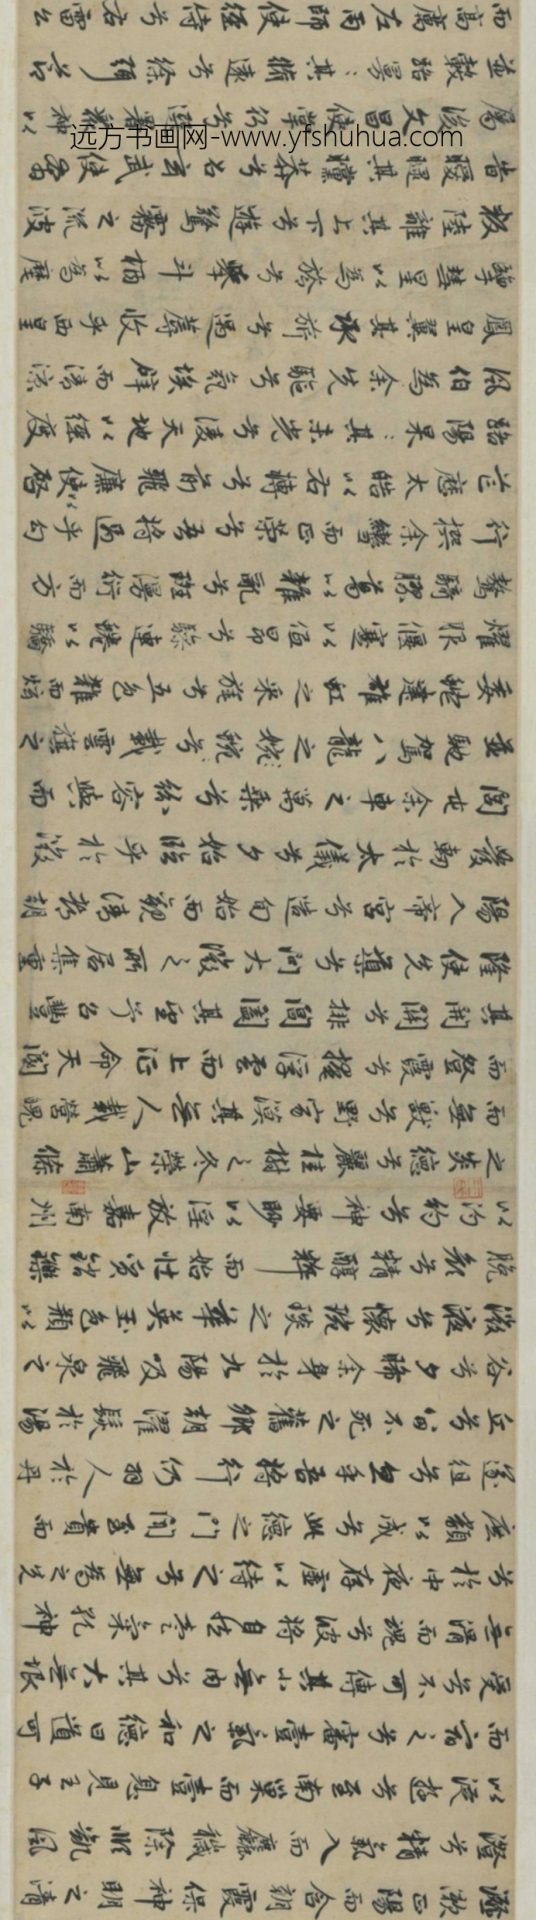 瀣漱正陽而含朝霞保神明之清
澄兮精氣入而麤穢除順凱風
以從遊兮至南巢而壹息見王子
而宿之兮審壹氣之和德曰道可
受兮不可傳其小無內兮其大無垠
無滑而魂兮彼將自然壹氣孔神
兮於中夜存虛以待之兮無為之先
庶類以成兮此德之門聞至貴而
遂徂兮忽乎吾將行仍羽人於丹
丘兮留不死之舊鄉朝濯髮於湯
谷兮夕晞余身於九陽吸飛泉之
微液兮懷琬琰之華英玉色頩以
脕顏兮精醇粹而始壯質銷鑠
以汋約兮神要眇以淫放嘉南州
之炎德兮麗桂樹之冬榮山蕭條
而無獸兮野寂漠其無人載營魄
而登霞兮掩浮雲而上征命天閽
其開關兮排閶闔而望予召豐
隆使先導兮問大微之所居集重
陽入帝宮兮造旬始而觀清都朝
發軔於太儀兮夕始臨乎於微
閭屯余車之萬乘兮紛容與而
並馳駕八龍之婉婉兮載雲旗之
委蛇建雄虹之采旄兮五色雜而炫
耀服偃蹇以低昂兮驂連蜷以驕
驁騎膠葛以雜亂兮斑漫衍而方
行撰余轡而正策兮吾將過乎句
芒歷太皓以右轉兮前飛廉使以啓
路陽杲〻其未光兮凌天地以徑度
風伯為余先驅兮氛埃辟而清涼
鳳皇翼其承旂兮遇蓐收乎西皇
擥彗星以為旍兮舉斗柄以為麾
叛陸離其上下兮遊驚霧之流波
時曖曃其曭莽兮召玄武使奔
屬後文昌使掌行兮選署眾神以
並轂路曼〻其修遠兮徐弭節
而高厲左雨師使徑侍兮右雷公
远方书画网-www.yfshuhua.com